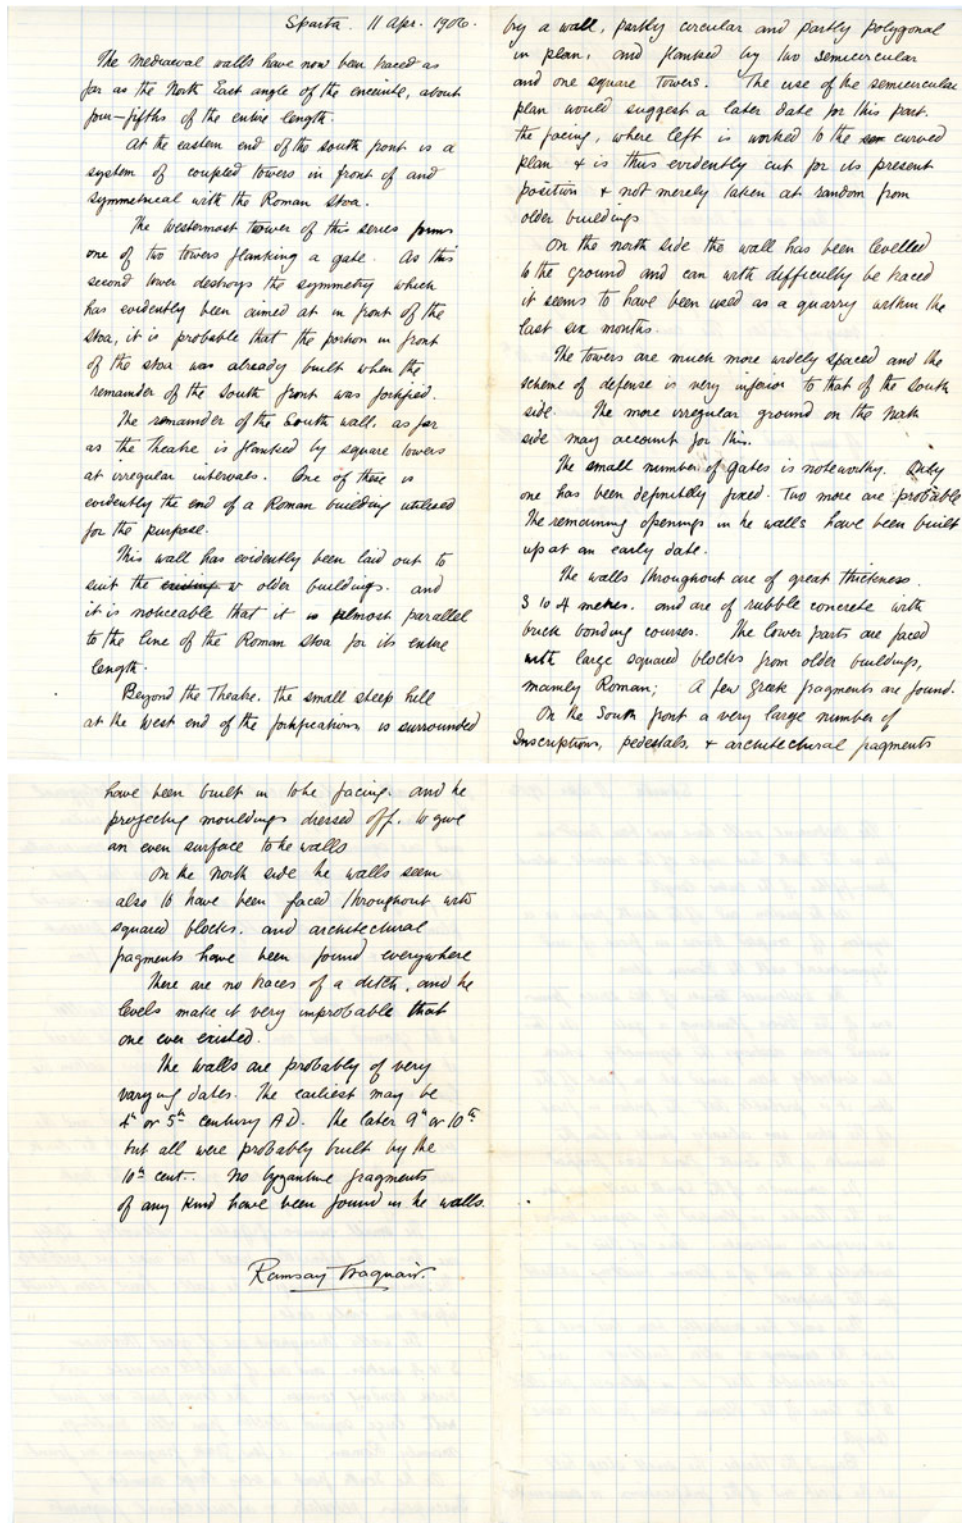 Sparta. 11 Apr. 1906.
The Mediaeval walls have now been traced as
far as the North East angle of the enceinte, about
four-fifths of the entire length.
At the eastern end of the south front is a
system of coupled towers in front of and
symmetrical with the Roman Stoa.
The Westernmost tower of this series forms
one of two towers flanking a gate. As this
second tower destroys the symmetry which
has evidently been aimed at in front of the
Stoa, it is probable that the portion in front
of the stoa was already built when the
remainder of the South front was fortified.
The remainder of the South wall, as far
as the Theatre is flanked by square towers
at irregular intervals. One of these is
evidently the end of a Roman building utilised
for the purpose.
This wall has evidently been laid out to
suit the existing w older buildings. and
it is noticeable that it is almost parallel
to the line of the Roman Stoa for its entire
length.
Beyond the Theatre, the small steep hill
at the West end of the fortifications, is surrounded
by a wall, partly circular and partly polygonal
in plan, and flanked by two semicircular
and one square towers. The use of the semicircular
plan would suggest a later date for this part.
the facing, where left is worked to the curved
plan & is thus evidently cut for its present
position & not merely taken at random from
older buildings
On the north side the wall has been levelled
to the ground and can with difficulty be traced
it seems to have been used as a quarry within the
last six months.
The towers are much more widely spaced and the
scheme of defense is very inferior to that of the South
side. The more irregular ground on the North
side may account for this.
The small number of gates is noteworthy. Only
one has been definitely fixed. Two more are probable
The remaining openings in the walls have been built
up at an early date.
The walls throughout are of great thickness.
3 to 4 metres. and are of rubble concrete with
brick bonding courses. The lower parts are faced
with large squared blocks from older buildings,
mainly Roman; A few Greek fragments are found.
On the South front a very large number of
Inscriptions, pedestals, & architectural fragments
have been built in to the facing. and the
projecting mouldings dressed off, to give
an even surface to the walls
On the North side the walls seem
also to have been faced throughout with
squared blocks. and architectural
fragments have been found everywhere
There are no traces of a ditch, and the
levels make it very improbable that
one ever existed.
The walls are probably of very
varying dates. The earliest may be
4th or 5th century AD. the later 9th or 10th
but all were probably built by the
10th cent.. No byzantine fragments
of any kind have been found in the walls.
Ramsay Traquair.